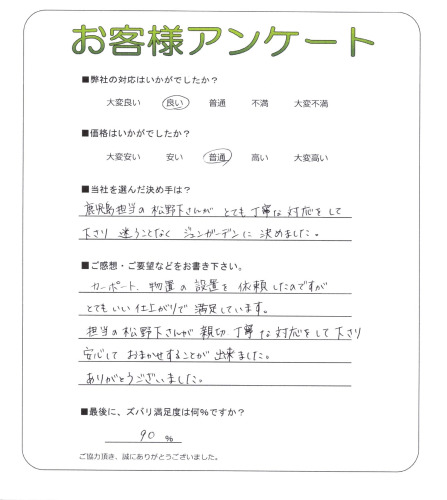 お客様アンケート
■弊社の対応はいかがでしたか？
大変良い 良い 普通 不満 大変不満
■価格はいかがでしたか？
大変安い 安い 普通 高い 大変高い
■当社を選んだ決め手は？
鹿児島担当の松野下さんが とても丁寧な対応をして
下さり 迷うことなく ジュンガーデンに決めました。
■ご感想・ご要望などをお書き下さい。
カーポート、物置の設置を依頼したのですが
とてもいい仕上がりで満足しています。
担当の松野下さんが親切丁寧な対応をして下さり
安心して おまかせすることが出来ました。
ありがとうございました。
■最後に、ズバリ満足度は何％ですか？
90 ％
ご協力頂き、誠にありがとうございました。